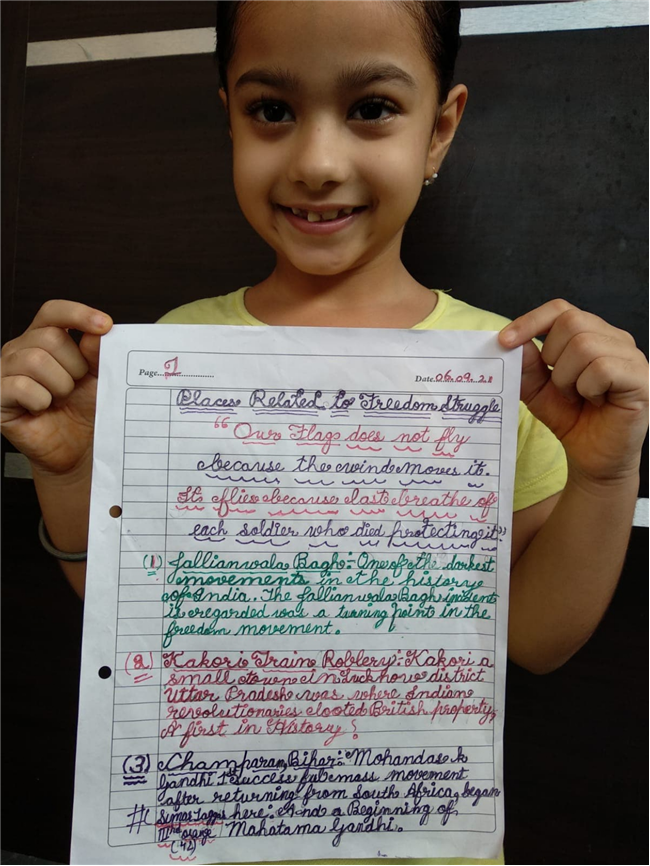 Page... 1 ............ Date. 06.09.21
Places Related to Freedom Struggle
"Our Flag does not fly
because the wind moves it.
It flies because last breathe of
each soldier who died protecting it"
(1) Jallianwala Bagh:- One of the darkest
movements in the history
of India. The Jallianwala Bagh incident
is regarded was a turning point in the
freedom movement.
(2) Kakori Train Robbery:- Kakori a
small town in Lucknow district
Uttar Pradesh was where Indian
revolutionaries looted British property,
A first in History!
(3) Champaran, Bihar:- Mohandas k
Gandhi 1 Success ful mass movement
after returning from South Africa, began
# here. And a Beginning of
IIIrd orange Mahatama Gandhi.
(42)